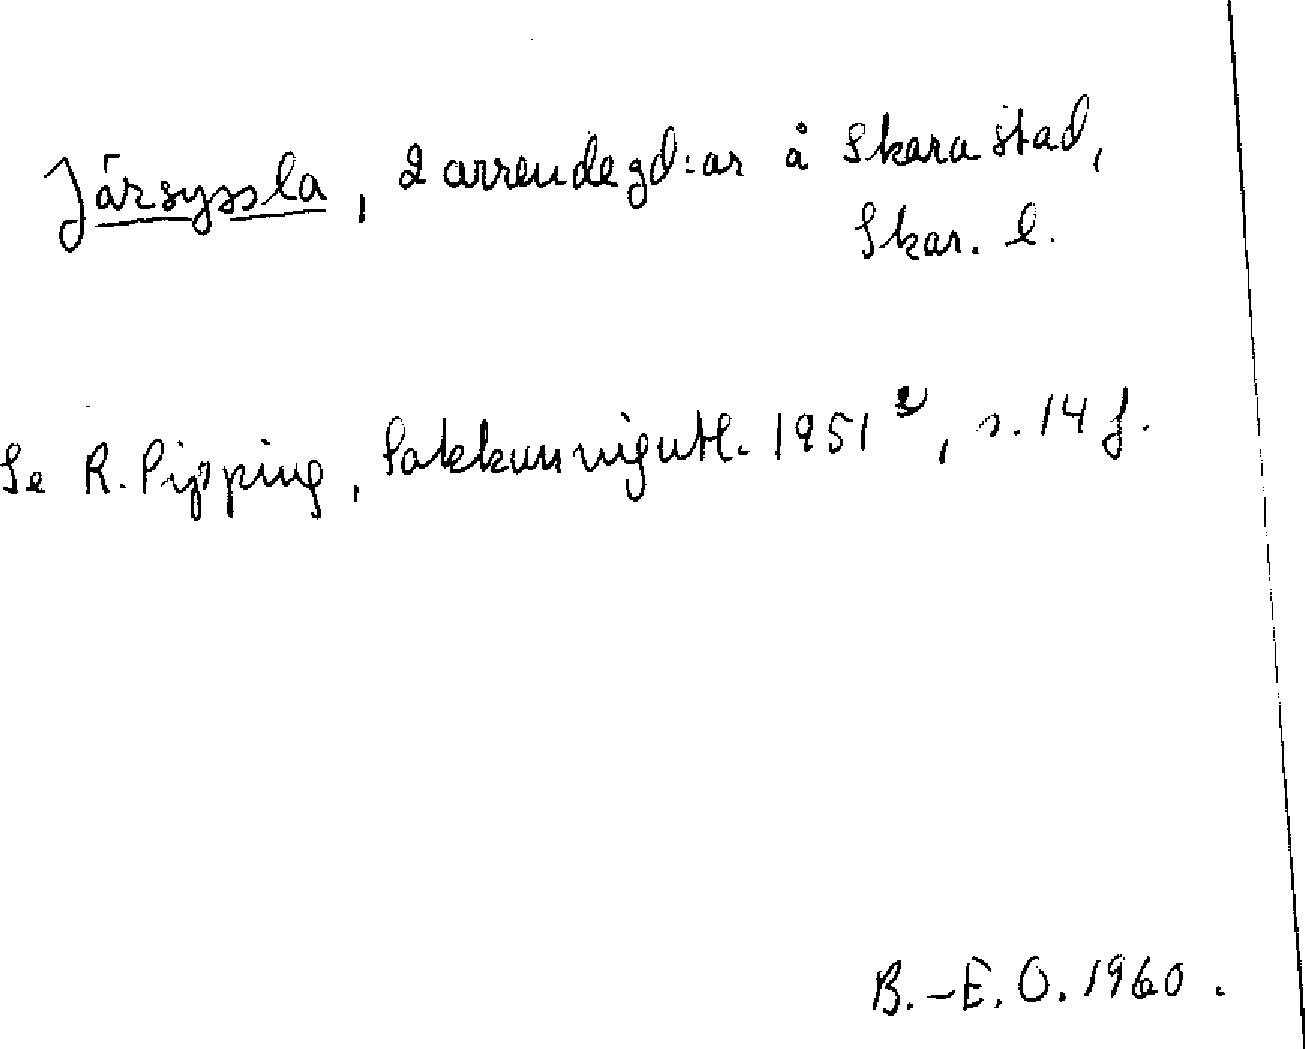 Järsyssla, 2 arrendegd:ar å Skara stad,
Skar. l.
Se R. Pipping, Sakkunnigutl. 1951², s. 14 f.
B.-E. O. 1960.